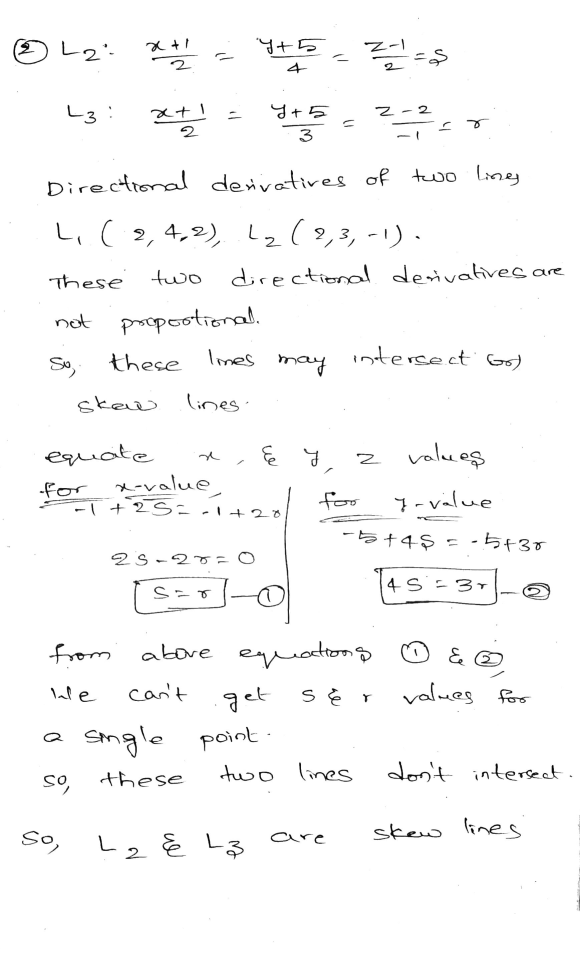 ② L2: x+1/2 = y+5/4 = z-1/2 = s
L3: x+1/2 = y+5/3 = z-2/-1 = r
Directional derivatives of two lines
L1 (2,4,2), L2 (2,3,-1).
These two directional derivatives are
not propostional.
So, these lines may intersect (or)
skew lines.
equate x, & y, z values
for x-value
-1+2S = -1+2r
2s-2r=0
S=r —①
for y-value
-5+4s = -5+3r
4S = 3r —②
from above equations ① & ②
We can't get s & r values for
a single point.
so, these two lines don't intersect.
So, L2 & L3 are skew lines